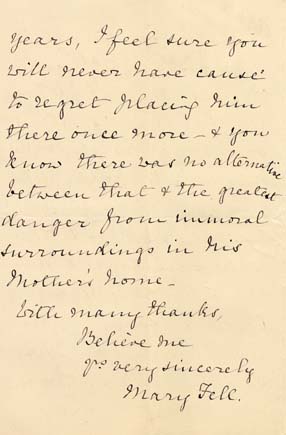 years, I feel sure you
will never have cause
to regret placing him
there once more - & you
know there was no alternative
between that & the greatest
danger from immoral
surroundings in his
Mother's home -
With many thanks,
Believe me
yrs very sincerely
Mary Fell.